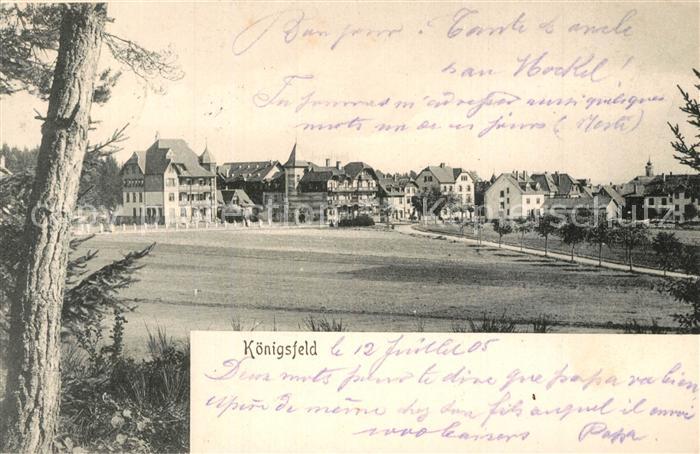 Bonjour à Tante & oncle
van Hockel!
Tu pourras m'adresser aussi quelques
mots un de ces jours (Merti)
Königsfeld le 12 Juillet 05
Deux mots pour te dire que papa va bien
de même chez son fils auquel il envoie
1000 baisers Papa